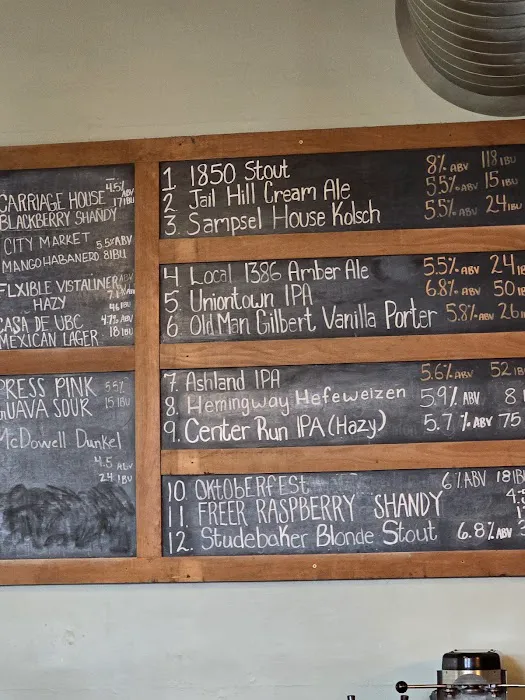 CARRIAGE HOUSE 4.5% ABV
BLACKBERRY SHANDY 17 IBU
CITY MARKET 5.5% ABV
MANGO HABANERO 81BU
FLXIBLE VISTALINER ABV
HAZY 46 IBU
CASA DE UBC 4.7% ABV
MEXICAN LAGER 18 IBU
PRESS PINK 5.5%
GUAVA SOUR 15 IBU
McDowell Dunkel
4.5 ABV
24 IBU
1 1850 Stout 8% ABV 118 IBU
2 Jail Hill Cream Ale 5.5% ABV 15 IBU
3. Sampsel House Kolsch 5.5% ABV 24 IBU
4 Local 1386 Amber Ale 5.5% ABV 24 IB
5 Uniontown IPA 6.8% ABV 50 IB
6 Old Man Gilbert Vanilla Porter 5.8% ABV 26 IB
7. Ashland IPA 5.6% ABV 52 IB
8. Hemingway Hefeweizen 5.9% ABV 8 I
9. Center Run IPA (Hazy) 5.7% ABV 75
10 OKtobERfESt 6% ABV 18 IBU
11. FREER RASPBERRY SHANDY 4.5
12. Studebaker Blonde Stout 6.8% ABV